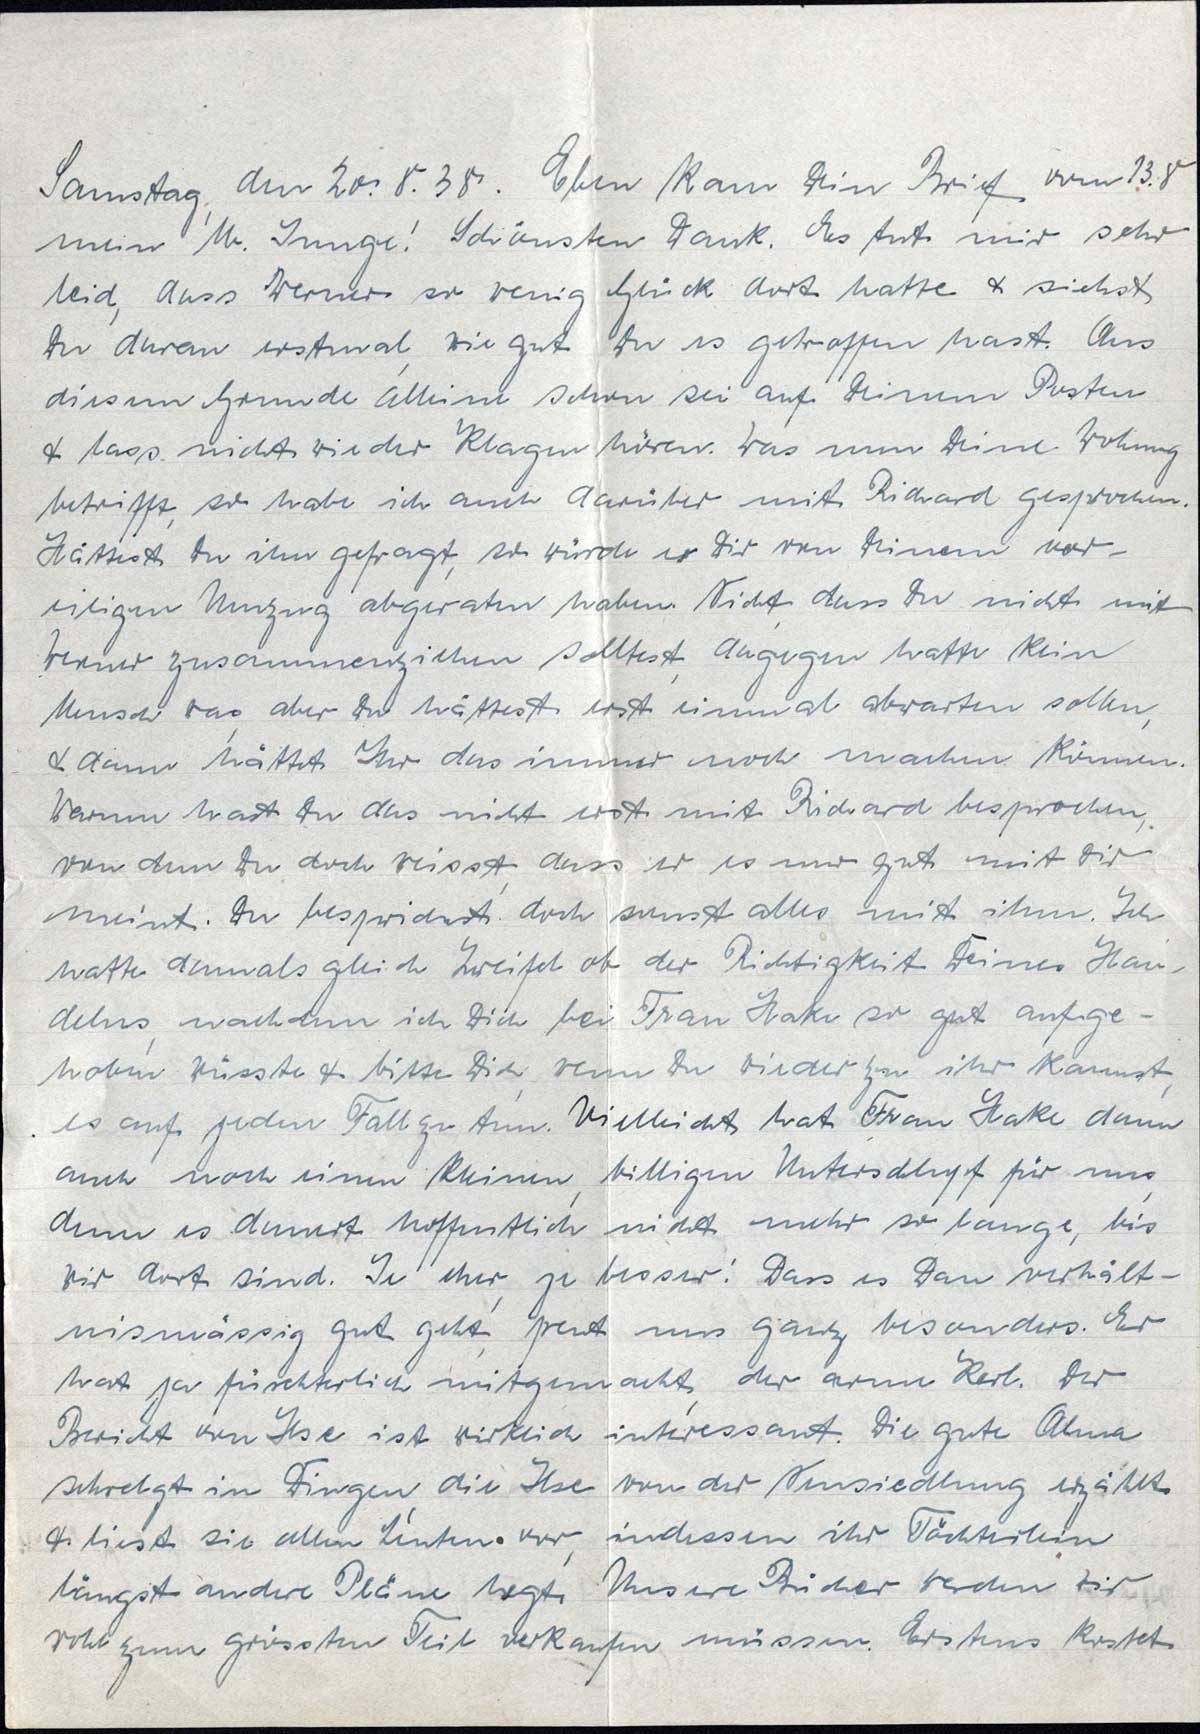 Samstag, den 20. 8. 38. Eben kam Dein Brief vom 13.8
mein lb. Junge! Schönsten Dank. Es tut mir sehr
leid, dass Werner so wenig Glück dort hatte & siehst
Du daran erstmal, wie gut Du es getroffen hast. Aus
diesem Grunde alleine schon sei auf Deinem Posten
& lass nicht wieder Klagen hören. Was nun Deine Wohnung
betrifft, so habe ich auch darüber mit Richard gesprochen.
Hättest Du ihn gefragt, so würde er Dir von Deinem vor-
eiligen Umzug abgeraten haben. Nicht, dass Du nicht mit
Werner zusammenziehen solltest, dagegen hatte kein
Mensch was, aber Du hättest erst einmal abwarten sollen,
& dann hättet Ihr das immer noch machen können.
Warum hast Du das nicht erst mit Richard besprochen,
von dem Du doch weisst, dass er es nur gut mit Dir
meint. Du besprichst doch sonst alles mit ihm. Ich
hatte damals gleich Zweifel ob der Richtigkeit Deines Han-
delns, nachdem ich Dich bei Frau Hake so gut aufge-
hoben wüsste & bitte Dich, wenn Du wieder zu ihr kannst,
es auf jeden Fall zu tun. Vielleicht hat Frau Hake dann
auch noch einen kleinen, billigen Unterschlupf für uns,
denn es dauert hoffentlich nicht mehr so lange, bis
wir dort sind. Je eher, je besser! Dass es Dan verhält-
nismässig gut geht, freut uns ganz besonders. Er
hat ja fürchterlich mitgemacht, der arme Kerl. Der
Bericht von Ilse ist wirklich interessant. Die gute Alma
schwelgt in Dingen, die Ilse von der Neusiedlung erzählt
& liest sie allen Leuten vor, indessen ihr Töchterlein
längst andere Pläne hegt. Unsere Bücher werden wir
wohl zum grössten Teil verkaufen müssen. Erstens kostet